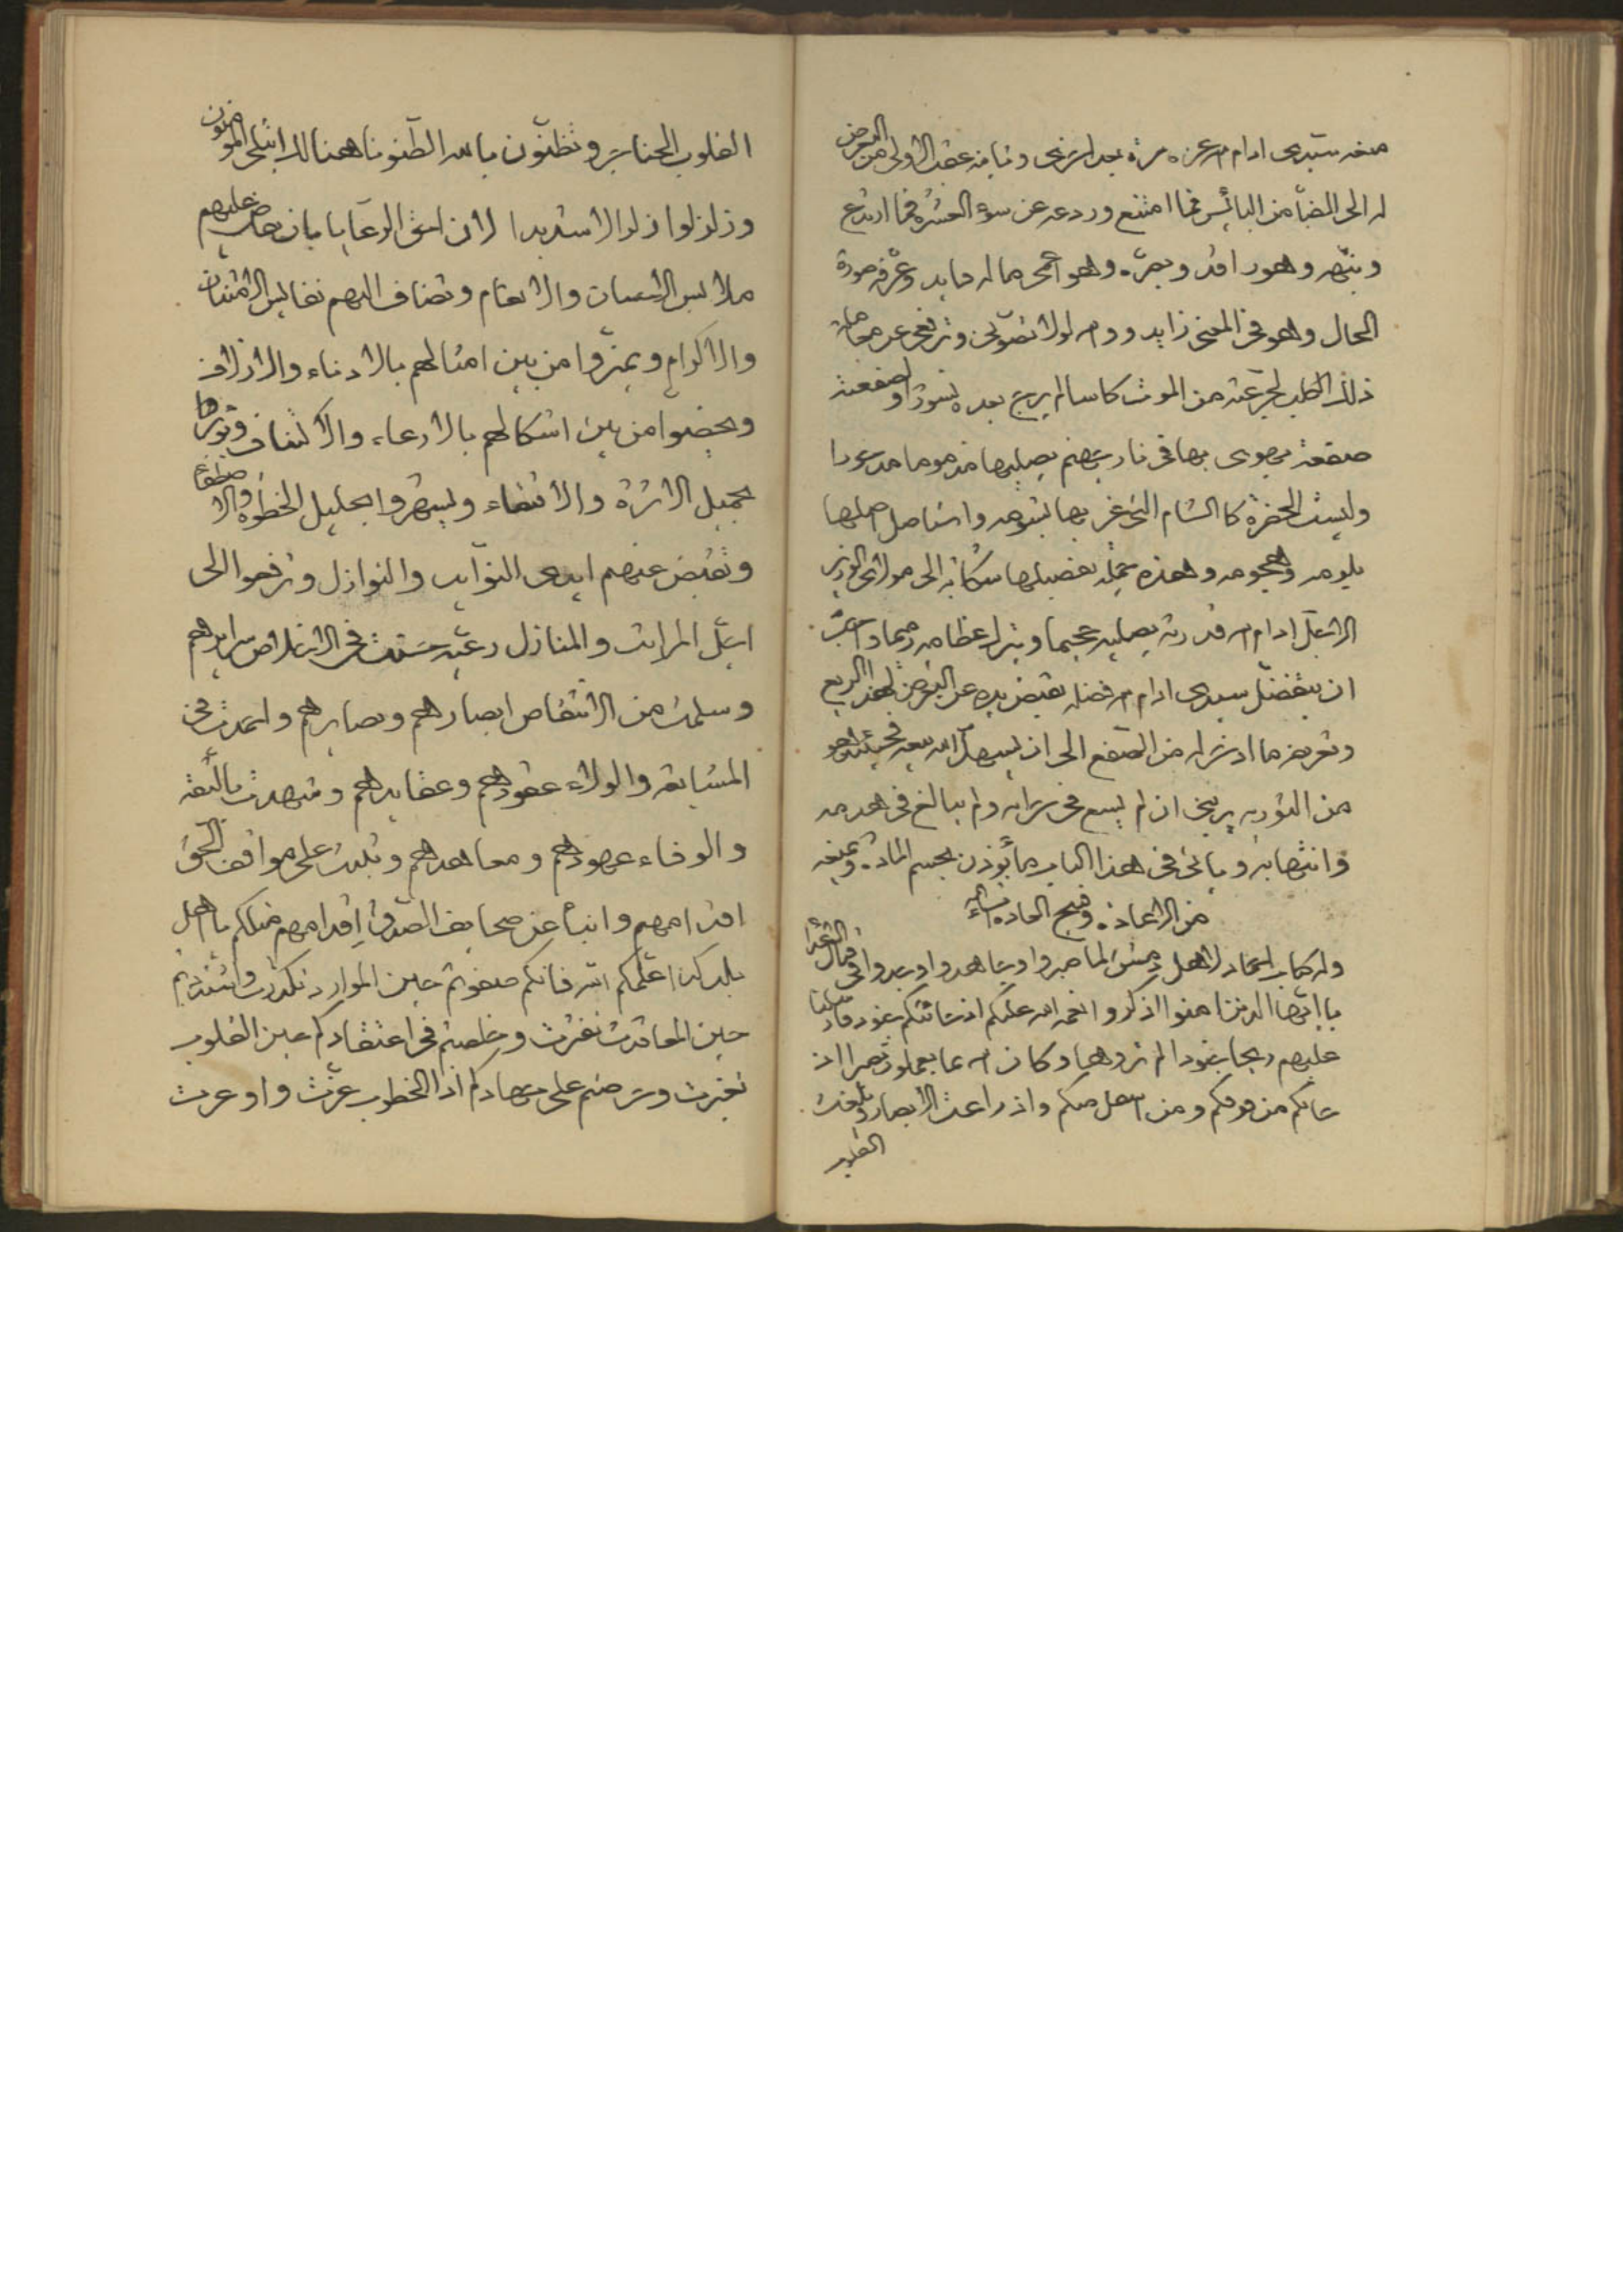 منعه سيدى ادام الله عزه مرة بعد اخرى وثانية عقب الاولى من التعرض
له الى الضامن البائس فما امتنع وردعه عن سوء العشرة فما ارتدع
ونبهه وهو راقد وبصره وهو اعمى ماله قايد وعرفه صورة
الحال وهو فى المعنى زايد ووالله لولا تصونى وترفعى عن مجاملة
ذلك الكلب لجرعته من الموت كاسا لم يرج بعده نشورا ولصفعته
صفعة يهوى بها فى نار جهنم يصليها مذموما مدحورا
وليست الحضرة كالشام التى غر بها بشومه واستاصل اهلها
بلومه وهجومه وهذه جملة تفصيلها شكاية الى مولاى الوزير
الاجل ادام الله قدرته يصليه جحيما ويترك عظامه رميما واحب
ان يتفضل سيدى ادام الله فضله بقبض يده عن التعرض لهذا الربع
وتعريفه ما ادخر له من الصفع الى ان يسهل الله بيعه فحينئذ هو
من النوربه يرتجى ان لم يسع فى خرابه ولم يبالغ فى هدمه
وانتهابه وياتى فى هذا الباب بما يؤذن بحسم المادة ويمنعه
من الاعادة وقبح العادة ان شاء الله
وله كتاب احماد لاهل دمشق لما صبروا وجاهدوا وجدوا فى قتال الاعداء
يا ايها الذين امنوا اذكروا نعمة الله عليكم اذ جاءتكم جنود فارسلنا
عليهم ريحا وجنودا لم تروها وكان الله بما تعملون بصيرا اذ
جاءوكم من فوقكم ومن اسفل منكم واذ زاغت الابصار وبلغت
القلوب
القلوب الحناجر وتظنون بالله الظنونا هنالك ابتلى المؤمنون
وزلزلوا زلزالا شديدا لان احق الرعايا بان يفاض عليهم
ملابس الاحسان والانعام وتضاف اليهم نفايس الامتنان
والاكرام ويميزوا من بين امثالهم بالادناء والازلاف
ويخصوا من بين اشكالهم بالارعاء والاكتناف ويؤثروا
بجميل الاثرة والاتنهاء وليشهروا بجليل الخطوة والاصطفاء
وتقبض عنهم ايدى النوايب والنوازل وترفعوا الى
اجل المراتب والمنازل رعية حسنت فى الاخلاص سرايرهم
وسلمت من الانتقاص ابصارهم وبصايرهم واحمدت فى
المشايعة والولاء عقودهم وعقايدهم وشهدت بالثقة
والوفاء عهودهم ومعاهدهم وثبتت على مواقف الحق
اقدامهم وانبأ عن صحايف الصدق اقدامهم مثلكم يا اهل
بلد كذا علمكم الله فانكم صفوتم حين الموارد تكدرت واستقربتم
حين المعاقدت نفرت وخلصتم فى اعتقادكم حين القلوب
تغيرت وحرصتم على جهادكم اذا الخطوب عرت واوعرت